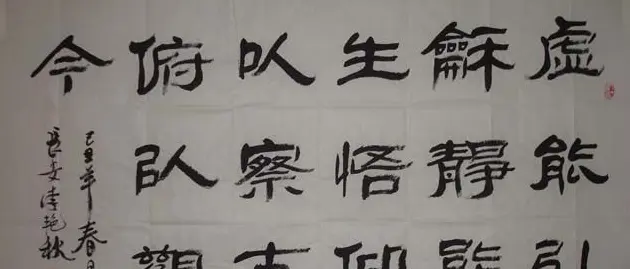 虚能引
龢靜能
生悟仰
以察古
俯以觀
今
己丑年春
長安李艳秋